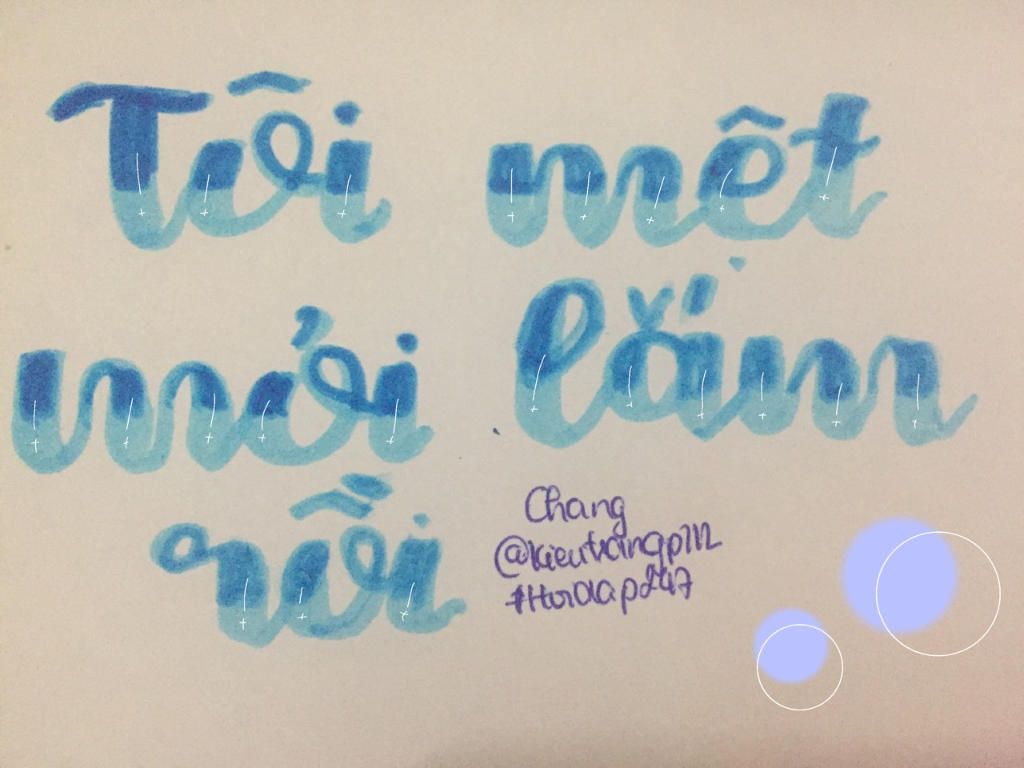 Tôi mệt
mỏi lắm
rồi
Chang
@kieutrangp112
#HoiDap247